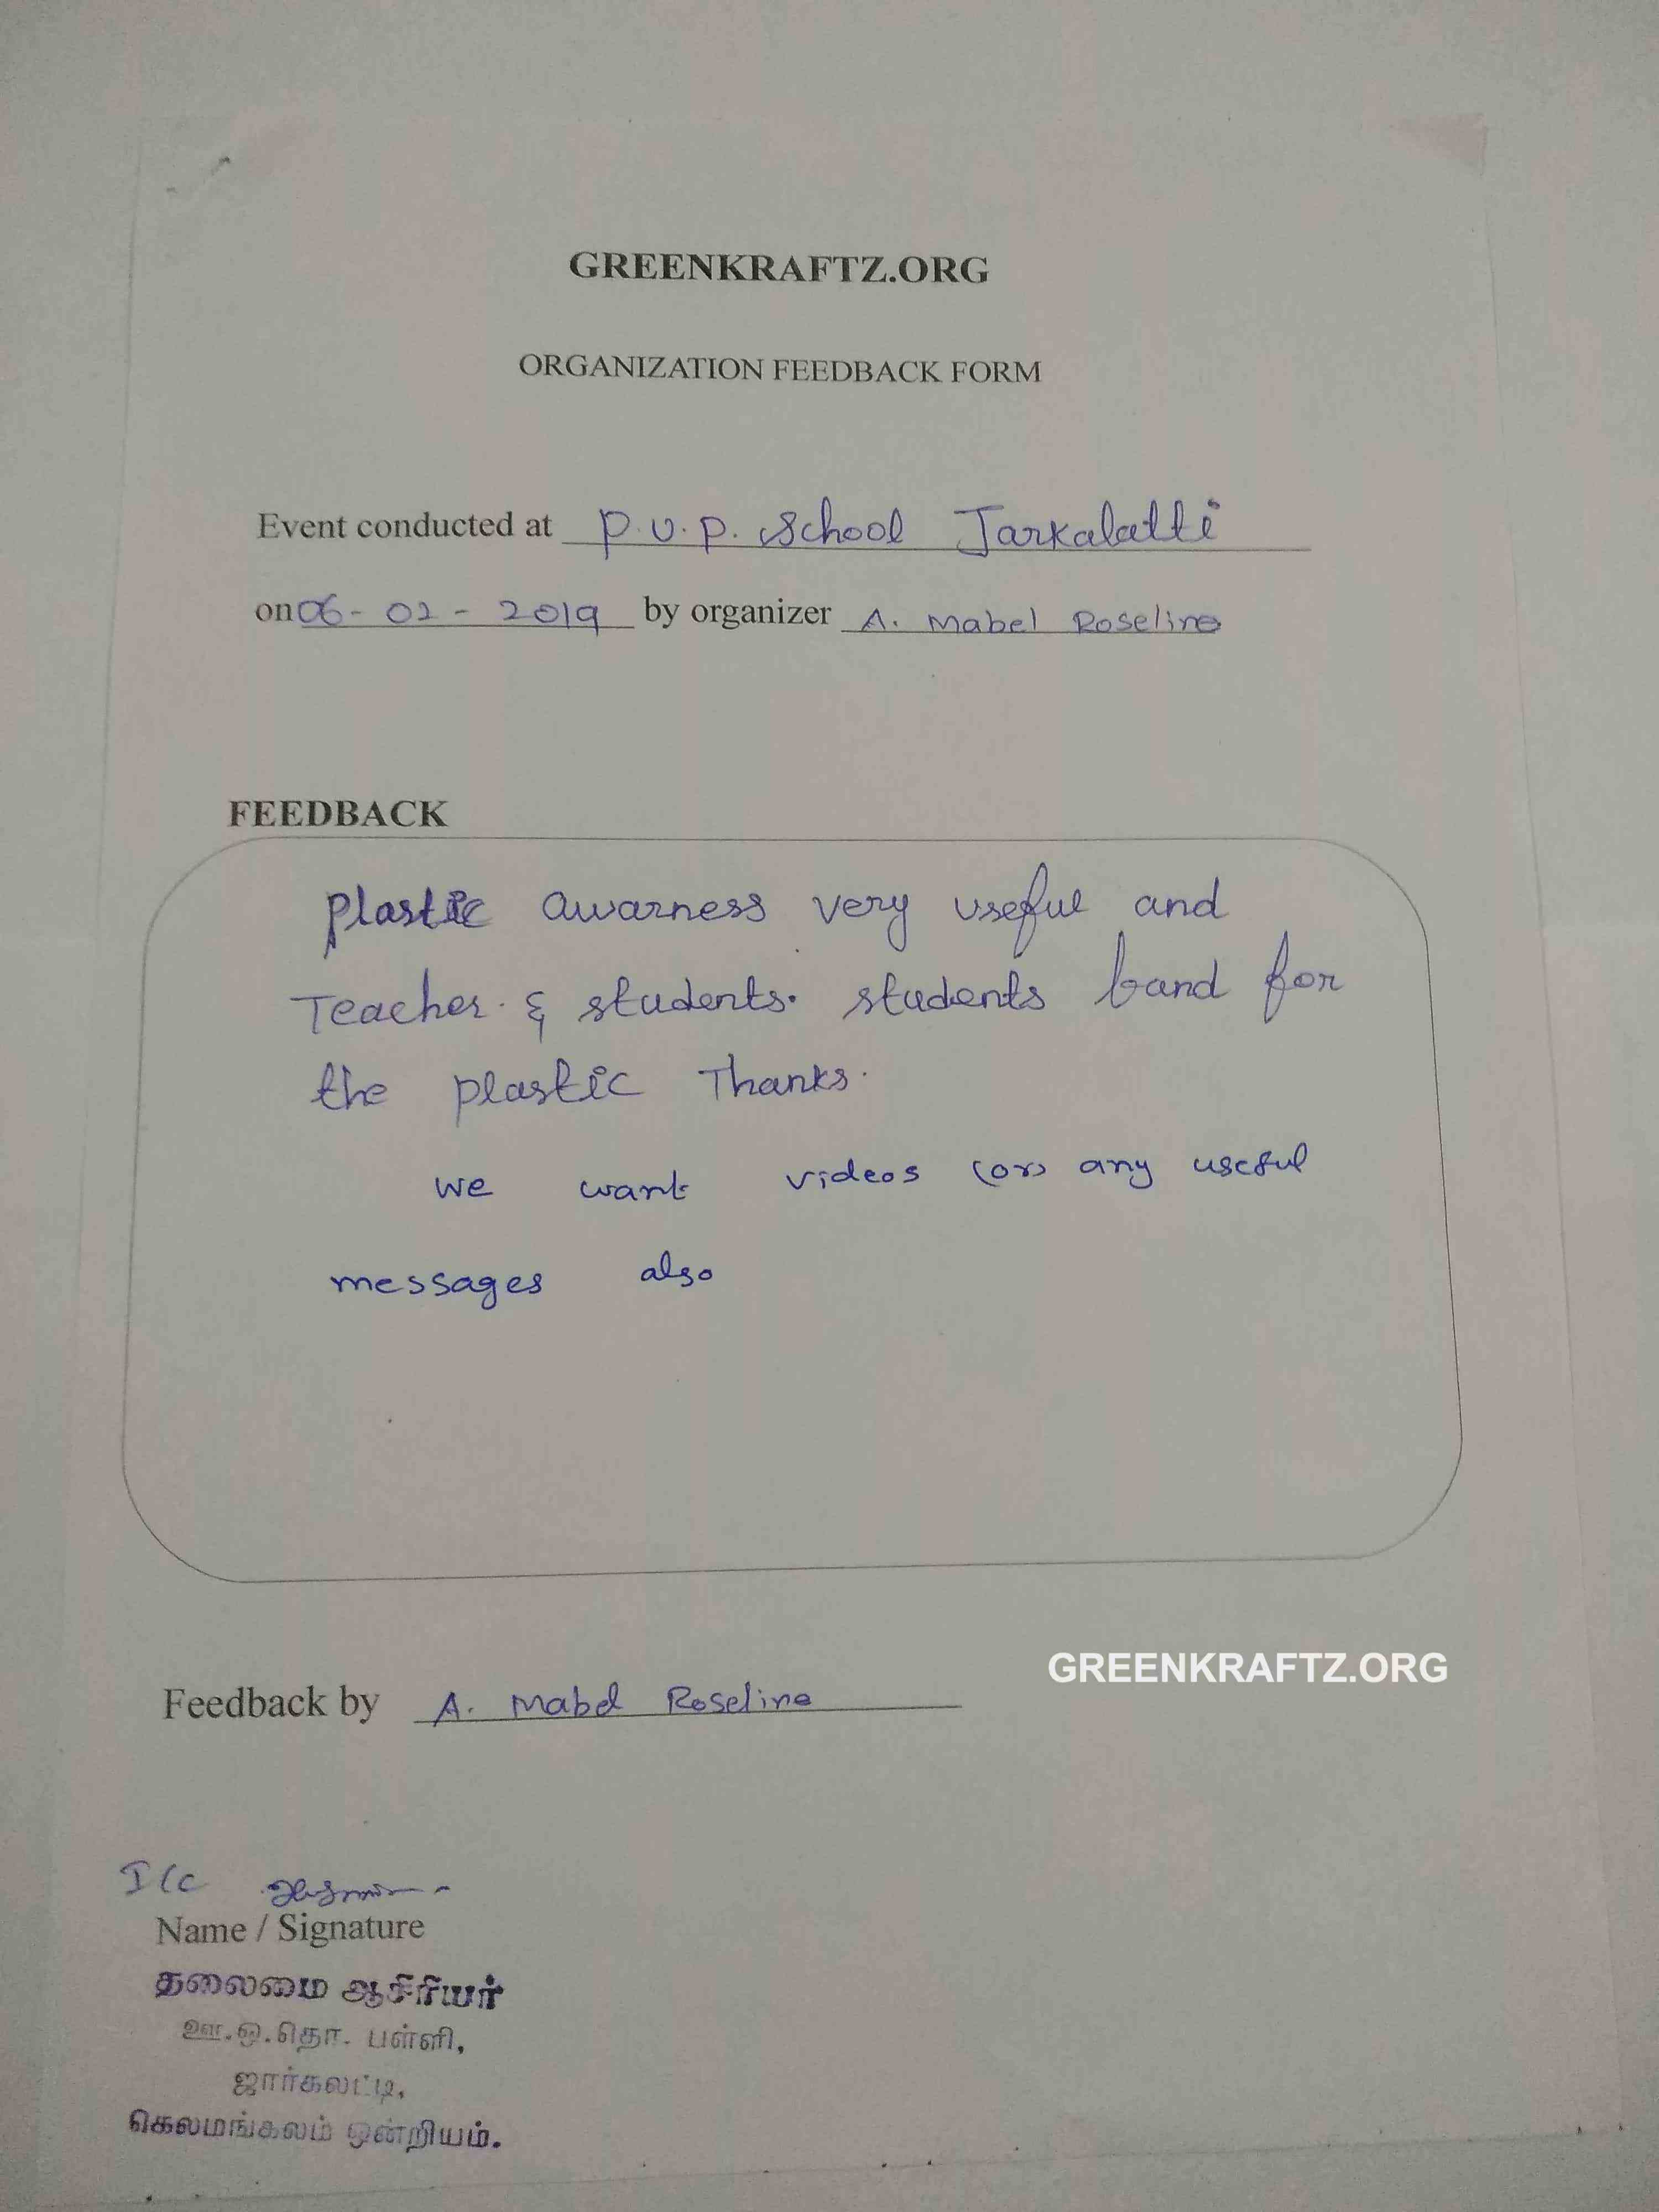 GREENKRAFTZ.ORG
ORGANIZATION FEEDBACK FORM
Event conducted at P.U.P. School Jarkalatti
on 06-02-2019 by organizer A. Mabel Roseline
FEEDBACK
Plastic awarness very useful and
Teacher & students. students band for
the plastic Thanks.
we want videos (or) any useful
messages also
GREENKRAFTZ.ORG
Feedback by A. Mabel Roseline
I/c
Name / Signature
தலைமை ஆசிரியர்
ஊ.ஒ.தொ. பள்ளி,
ஜார்கலட்டி,
கெலமங்கலம் ஒன்றியம்.